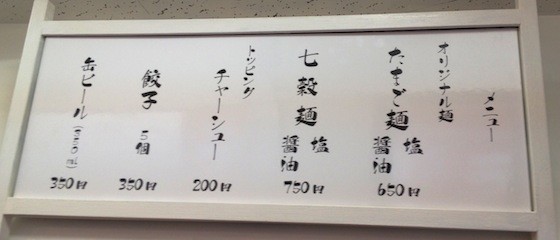 メニュー
オリジナル麺
たまご麺 塩
醤油
650円
七穀麺 塩
醤油
750円
トッピング
チャーシュー
200円
餃子 5個
350円
缶ビール(350ml)
350円